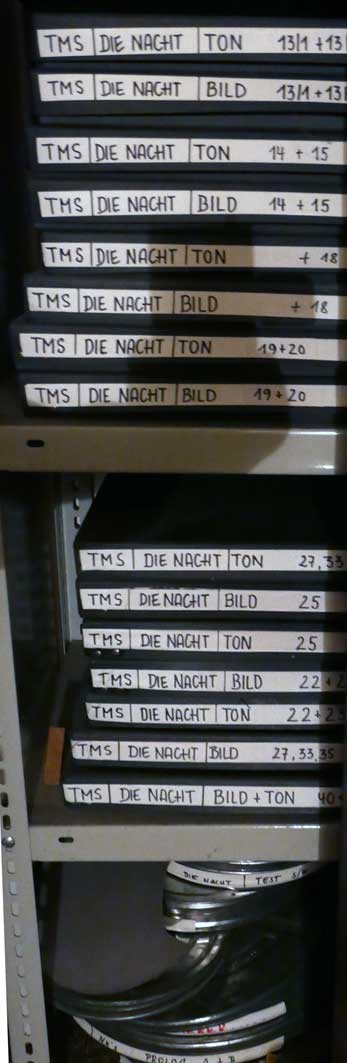 TMS | DIE NACHT | TON 13/1 + 13
TMS | DIE NACHT | BILD 13/1 + 13
TMS | DIE NACHT | TON 14 + 15
TMS | DIE NACHT | BILD 14 + 15
TMS | DIE NACHT | TON + 18
TMS | DIE NACHT | BILD + 18
TMS | DIE NACHT | TON 19+20
TMS | DIE NACHT | BILD 19+20
TMS | DIE NACHT | TON 27, 33
TMS | DIE NACHT | BILD 25
TMS | DIE NACHT | TON 25
TMS | DIE NACHT | BILD 22 +
TMS | DIE NACHT | TON 22 + 2
TMS | DIE NACHT | BILD 27, 33, 35
TMS | DIE NACHT | BILD + TON 40+
DIE NACHT | TEST
PROLOG